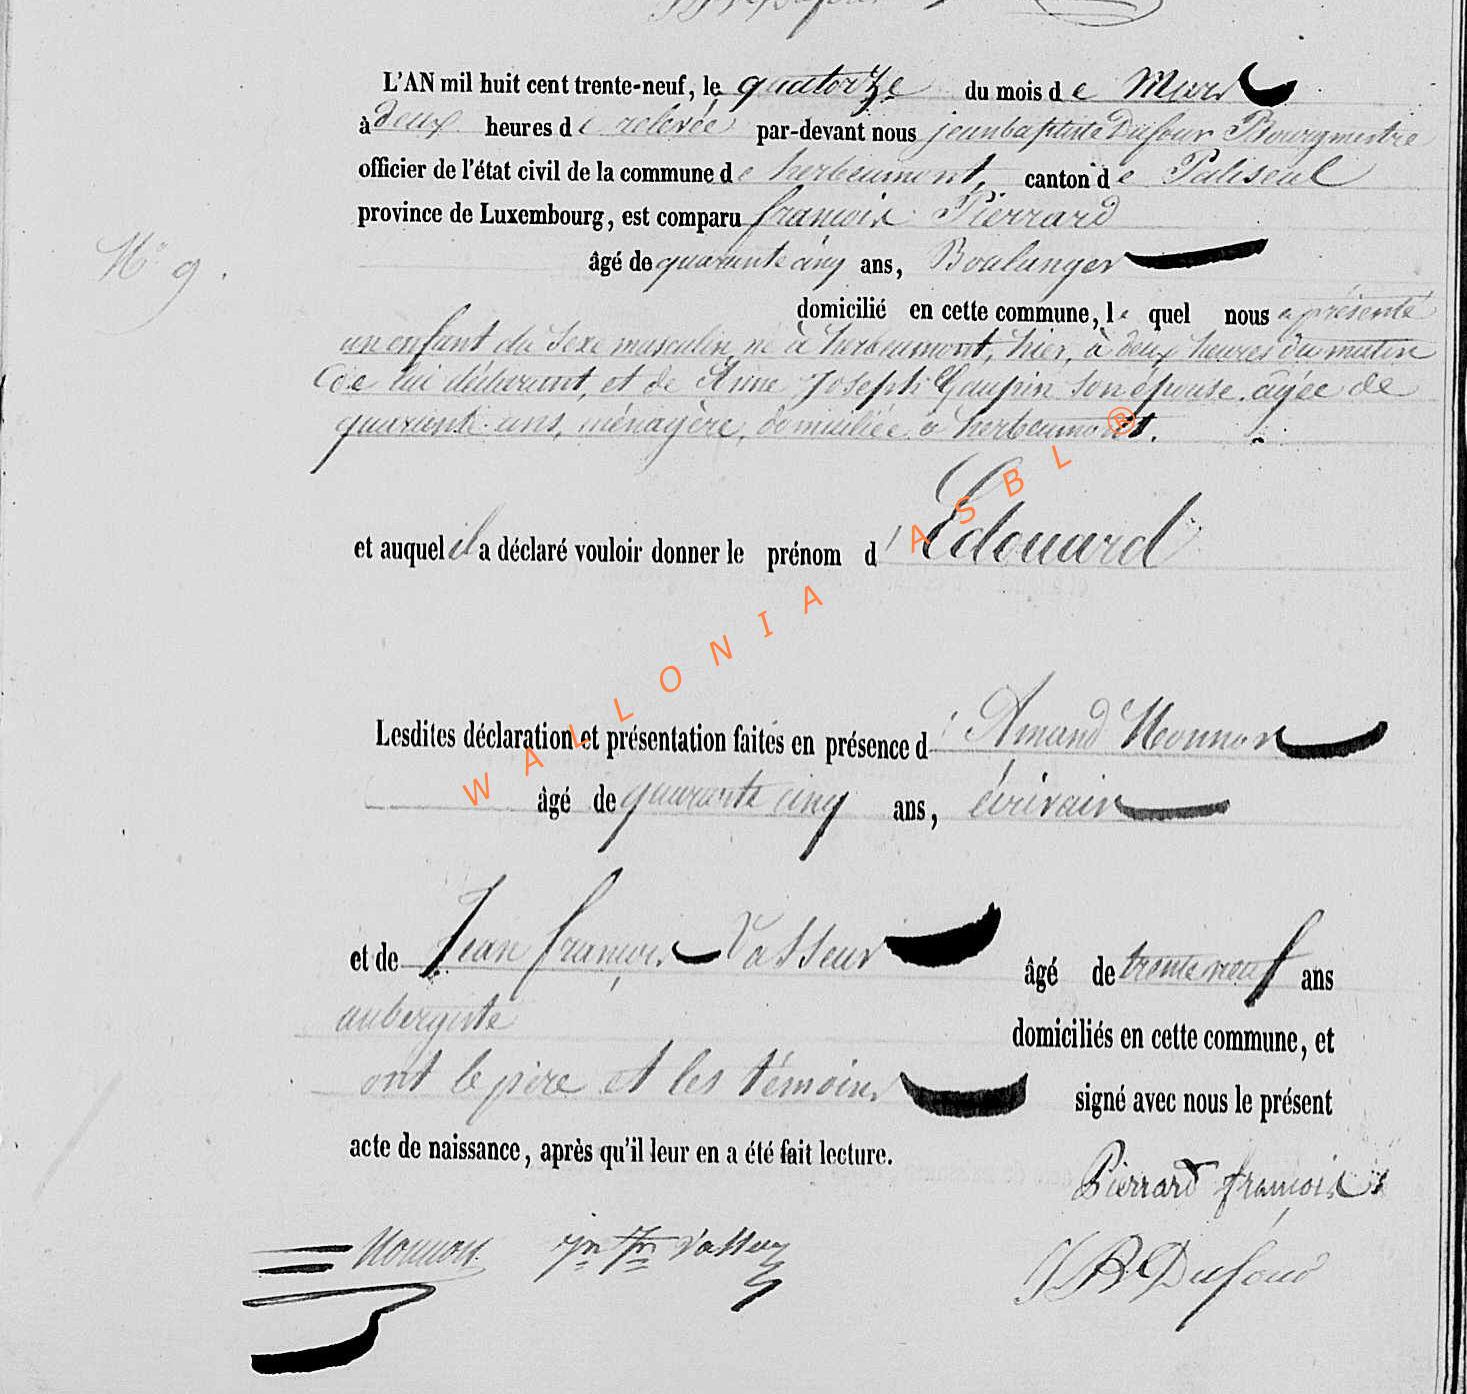 L'AN mil huit cent trente-neuf, le quatorze du mois de Mars
à deux heures de relevée par-devant nous jeanbaptiste Dufour Bourgmestre
officier de l'état civil de la commune de herbeumont, canton de Paliseul
province de Luxembourg, est comparu françois Pierrard
N° 9.
âgé de quarante cinq ans, Boulanger
domicilié en cette commune, le quel nous a présenté
un enfant du Sexe masculin, né à herbeumont, hier, à deux heures du matin
de lui déclarant, et de Anne Joseph Gaupin son épouse, agée de
quarante ans, ménagère, domiciliée à herbeumont.
et auquel il a déclaré vouloir donner le prénom d'Edouard
Lesdites déclaration et présentation faites en présence d'Amand Monnon
âgé de quarante cinq ans, écrivain
et de Jean françois Vasseur âgé de trente neuf ans
aubergiste
domiciliés en cette commune, et
ont le père et les témoins signé avec nous le présent
acte de naissance, après qu'il leur en a été fait lecture.
Pierrard françois
Monnon jn fn Vasseur JB Dufour
WALLONIA ASBL ®